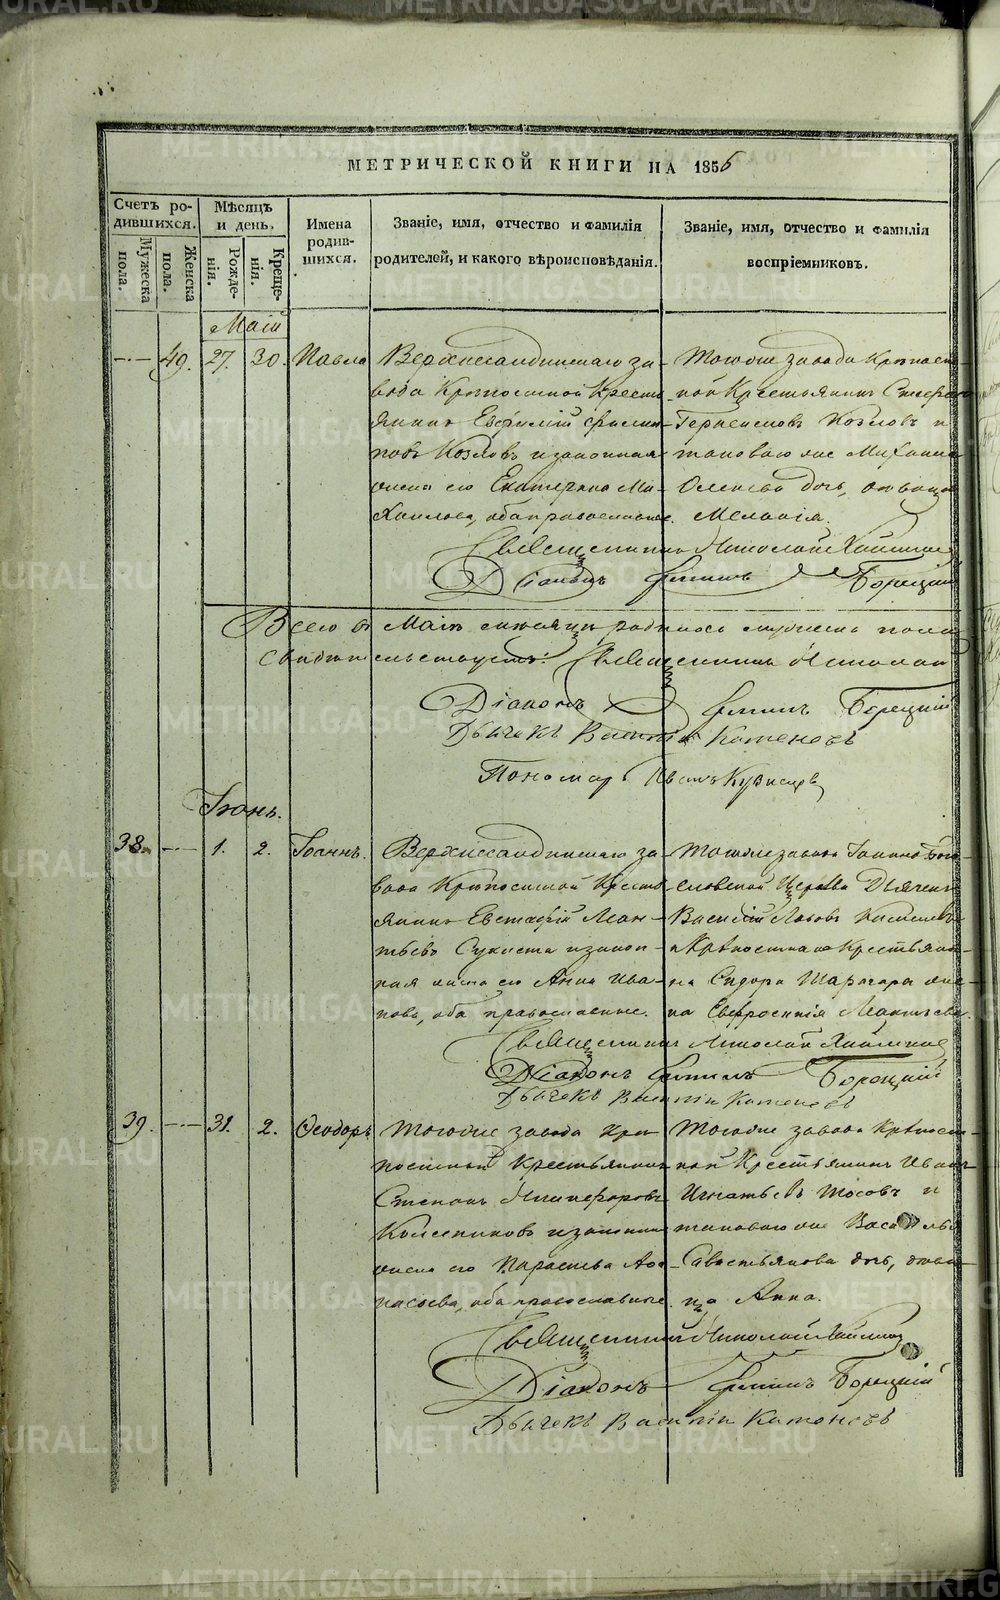 МЕТРИЧЕСКОЙ КНИГИ НА 1856
Счетъ родившихся.
Мужеска пола.
Женска пола.
Мѣсяцъ и день.
Рожденія.
Крещенія.
Имена родившихся.
Званіе, имя, отчество и фамилія
родителей, и какого вѣроисповѣданія.
Званіе, имя, отчество и фамилія
воспріемниковъ.
Маій
49. 27. 30. Павла
Верхисландинскаго за-
вода Крѣпостной Кресть
янинъ Евфимій Филип
повъ Козловъ и законная
жена его Екатерина Ми-
хаилова, оба православные.
Тогоже завода Крѣпост
ной Крестьянинъ
Козловъ и
таковаго же Михаила
дочь, дѣвица
Меланія.
Священникъ Николай
Діаконъ Филипъ Борецкій
Всего въ Маіѣ мѣсяцѣ родилось мужеска пола
Свидѣтельствуютъ: Священникъ Николай
Діаконъ Филипъ Борецкій
Дьячекъ Василій Катеновъ
Пономарь Иванъ Кузнецовъ
Іюнь.
38. 1. 2. Іоаннъ.
завода Крѣпостной Кресть
янинъ Евстафій Леон-
тьевъ и закон-
ная жена его Анна Ива-
нова, оба православные.
Тогоже завода Іоанно Бого-
словской Церкви Дьячекъ
Василій
и Крѣпостнаго Крестьяни-
на Сидора же-
на Евфросинія
Священникъ Николай
Діаконъ Филипъ Борецкій
Дьячекъ Василій Катеновъ
39. 31. 2. Ѳеодоръ
Тогоже завода Крѣ
постной Крестьянинъ
Степанъ Никифоровъ
Колесниковъ и законная
жена его Параскева Аѳа-
насьева, оба православные.
Тогоже завода Крѣпост-
ной Крестьянинъ Иванъ
Игнатьевъ и
таковаго же Василья
Савостьянова дочь, дѣви-
ца Анна.
Священникъ Николай
Діаконъ Филипъ Борецкій
Дьячекъ Василій Катоновъ
METRIKI.GASO-URAL.RU